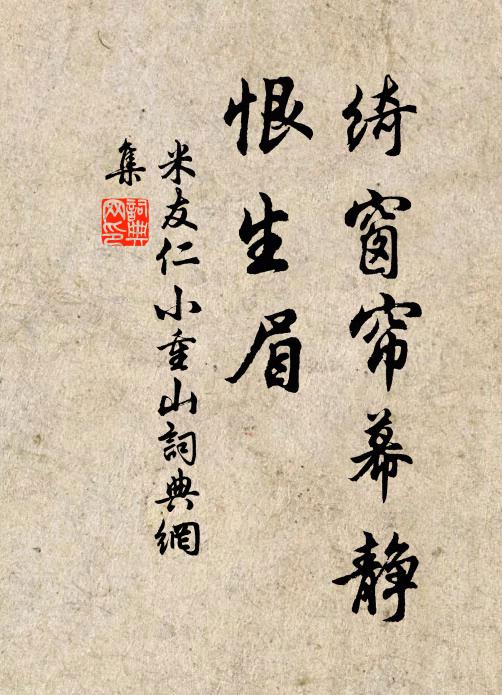 绮窗帘幕静
恨生眉
米友仁小重山詞典網
集
詞典网印